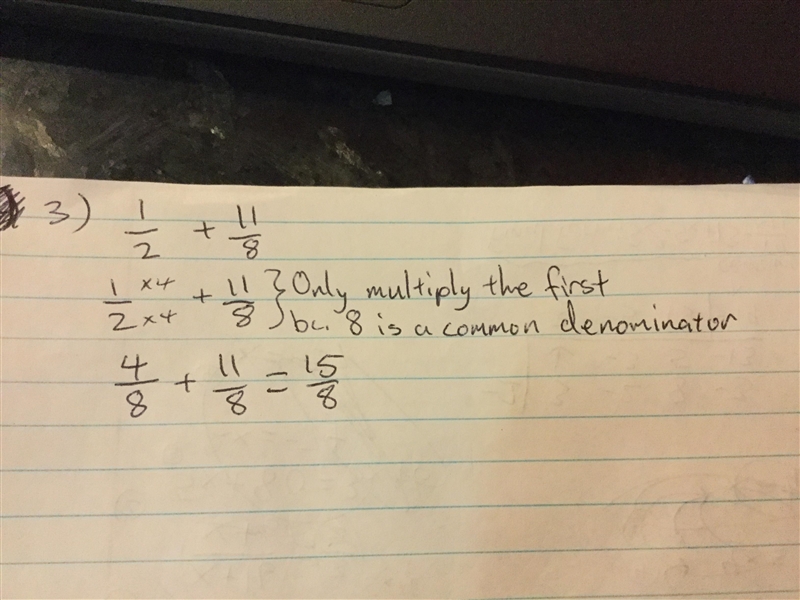 3) 1/2 + 11/8
1×4/2×4 + 11/8 } Only multiply the first
bc. 8 is a common denominator
4/8 + 11/8 = 15/8